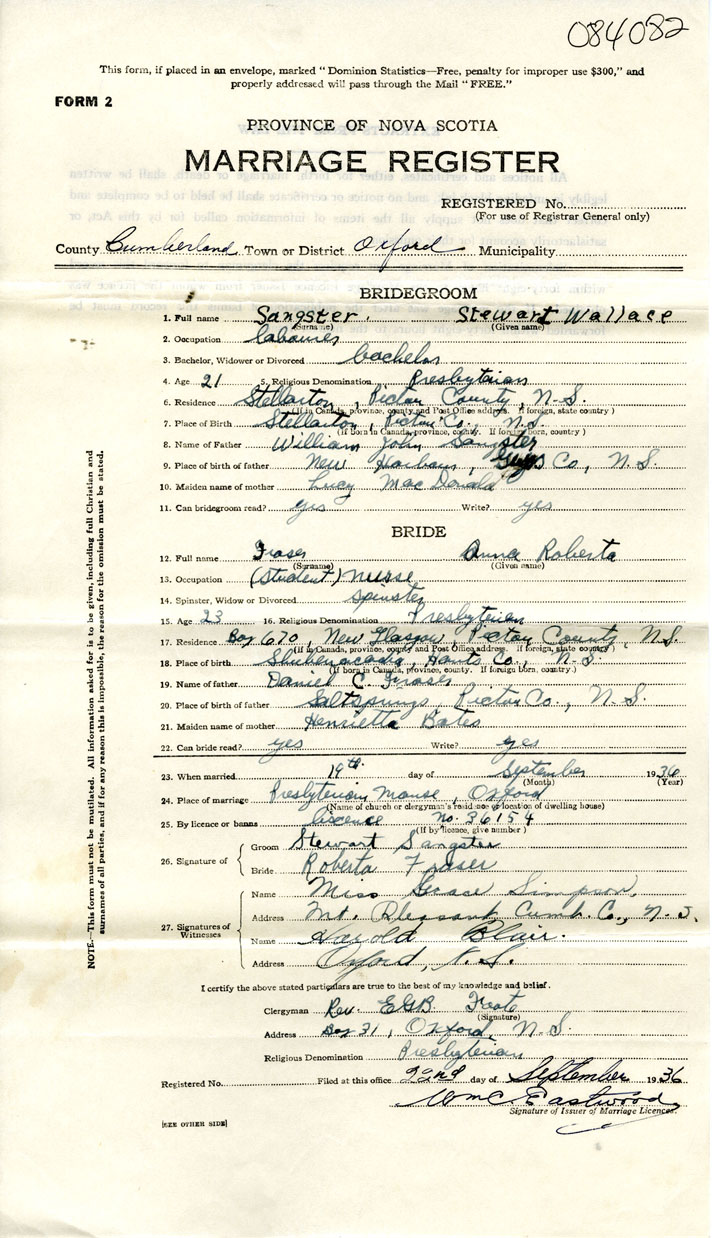 084082
This form, if placed in an envelope, marked "Dominion Statistics—Free, penalty for improper use $300," and
properly addressed will pass through the Mail "FREE."
FORM 2
PROVINCE OF NOVA SCOTIA
MARRIAGE REGISTER
REGISTERED No.
(For use of Registrar General only)
County Cumberland Town or District Oxford Municipality
BRIDEGROOM
1. Full name Sangster Stewart Wallace
(Surname) (Given name)
2. Occupation labourer
3. Bachelor, Widower or Divorced bachelor
4. Age 21 5. Religious Denomination Presbyterian
6. Residence Stellarton, Pictou County, N.S.
(If in Canada, province, county and Post Office address. If foreign, state country)
7. Place of Birth Stellarton, Pictou Co., N.S.
(If born in Canada, province, county. If foreign born, country)
8. Name of Father William John Sangster
9. Place of birth of father New Harbour, Guys Co, N.S.
10. Maiden name of mother Lucy MacDonald
11. Can bridegroom read? yes Write? yes
BRIDE
12. Full name Fraser Anna Roberta
(Surname) (Given name)
13. Occupation (student) nurse
14. Spinster, Widow or Divorced spinster
15. Age 23 16. Religious Denomination Presbyterian
17. Residence Box 670, New Glasgow, Pictou County, N.S.
(If in Canada, province, county and Post Office address. If foreign, state country)
18. Place of birth Shubenacadie, Hants Co., N.S.
(If born in Canada, province, county. If foreign born, country.)
19. Name of father Daniel C. Fraser
20. Place of birth of father Saltsprings, Pictou Co., N.S.
21. Maiden name of mother Henrietta Bates
22. Can bride read? yes Write? yes
23. When married 19th day of September 1936
(Month) (Year)
24. Place of marriage Presbyterian Manse, Oxford
(Name of church or clergyman's residence or location of dwelling house)
25. By licence or banns licence no. 36154
(If by licence, give number)
26. Signature of
Groom Stewart Sangster
Bride Roberta Fraser
27. Signatures of Witnesses
Name Miss Grace Simpson
Address Mt. Pleasant, Cumb. Co., N.S.
Name Harold Blair.
Address Oxford, N.S.
I certify the above stated particulars are true to the best of my knowledge and belief.
Clergyman Rev. EGB Foote
(Signature)
Address Box 31, Oxford, N.S.
Religious Denomination Presbyterian
Registered No. Filed at this office 22nd day of September 1936
WmC Eastwood
Signature of Issuer of Marriage Licences.
[SEE OTHER SIDE]
NOTE.—This form must not be mutilated. All information asked for is to be given, including full Christian and
surnames of all parties, and if for any reason this is impossible, the reason for the omission must be stated.